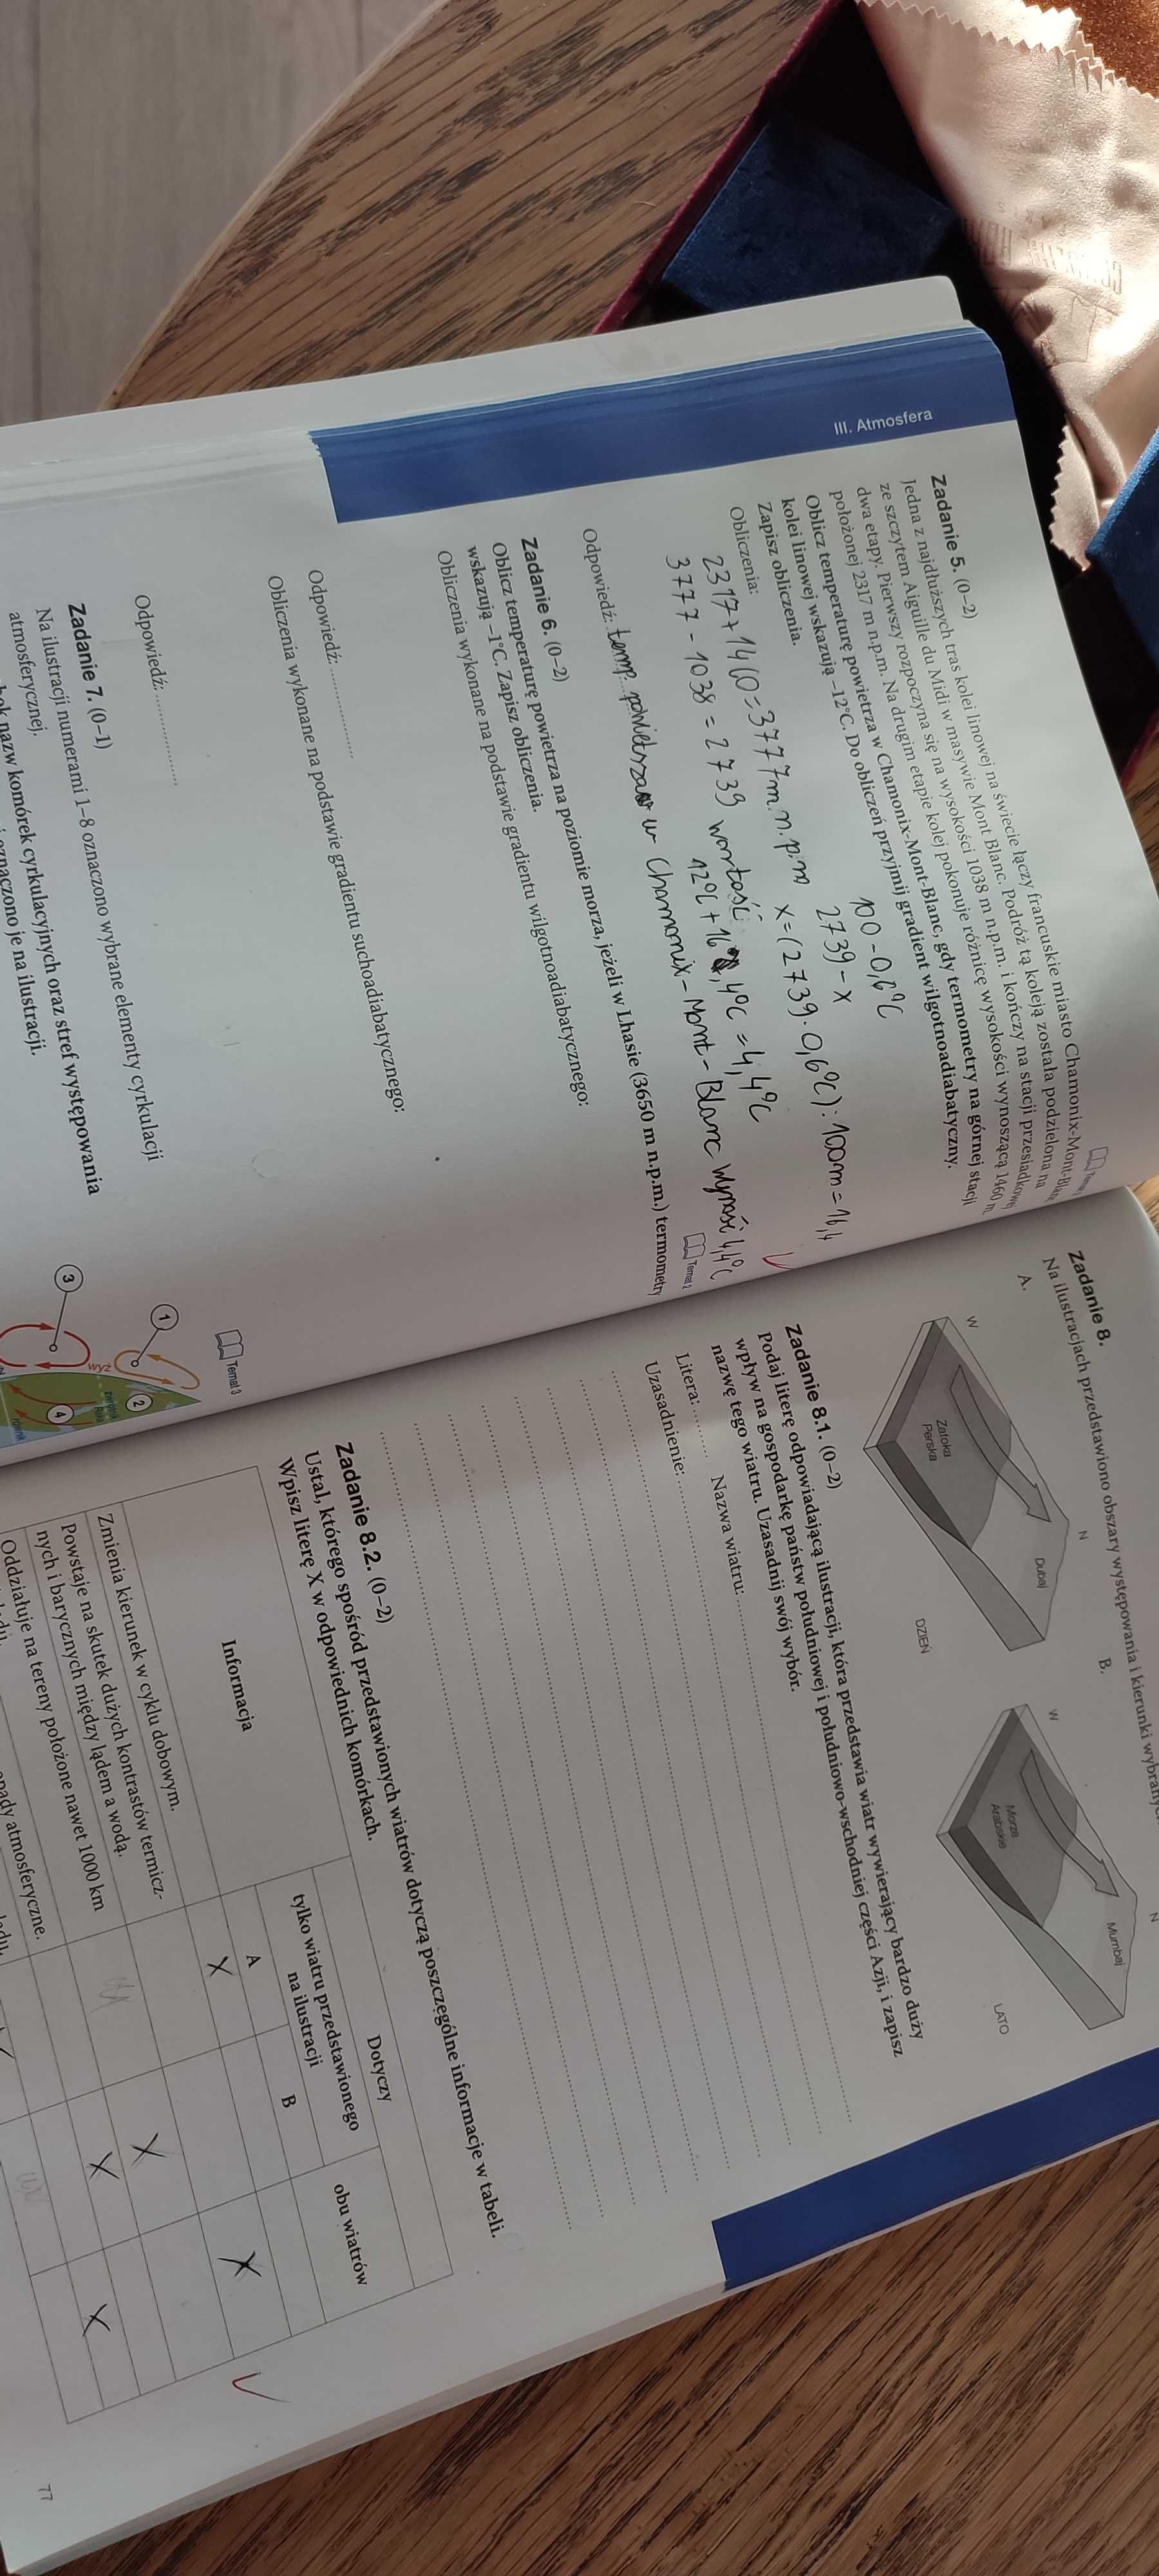 III. Atmosfera
Zadanie 5. (0–2)
Jedna z najdłuższych tras kolei linowej na świecie łączy francuskie miasto Chamonix-Mont-Blanc
ze szczytem Aiguille du Midi w masywie Mont Blanc. Podróż tą koleją została podzielona na
dwa etapy. Pierwszy rozpoczyna się na wysokości 1038 m n.p.m. i kończy na stacji przesiadkowej
położonej 2317 m n.p.m. Na drugim etapie kolej pokonuje różnicę wysokości wynoszącą 1460 m.
Oblicz temperaturę powietrza w Chamonix-Mont-Blanc, gdy termometry na górnej stacji
kolei linowej wskazują –12°C. Do obliczeń przyjmij gradient wilgotnoadiabatyczny.
Zapisz obliczenia.
Obliczenia:
100 - 0,6°C
2739 - x
2317+1460=3777m.n.p.m x=(2739·0,6°C):100m=16,4
3777-1038=2739 wartość:
12°C+16,4°C=4,4°C
Odpowiedź: temp. powietrza w Chamonix-Mont-Blanc wynosi 4,4°C
Temat 2
Zadanie 6. (0–2)
Oblicz temperaturę powietrza na poziomie morza, jeżeli w Lhasie (3650 m n.p.m.) termometry
wskazują –1°C. Zapisz obliczenia.
Obliczenia wykonane na podstawie gradientu wilgotnoadiabatycznego:
Odpowiedź:
Obliczenia wykonane na podstawie gradientu suchoadiabatycznego:
Odpowiedź:
Temat 3
Zadanie 7. (0–1)
Na ilustracji numerami 1–8 oznaczono wybrane elementy cyrkulacji
atmosferycznej.
nazw komórek cyrkulacyjnych oraz stref występowania
oznaczono je na ilustracji.
1
2
3
wyż
4
Zadanie 8.
Na ilustracjach przedstawiono obszary występowania i kierunki
A.
W
N
Zatoka
Perska
Dubaj
DZIEŃ
B.
W
N
Morze
Arabskie
Mumbaj
LATO
Zadanie 8.1. (0–2)
Podaj literę odpowiadającą ilustracji, która przedstawia wiatr wywierający bardzo duży
wpływ na gospodarkę państw południowej i południowo-wschodniej części Azji, i zapisz
nazwę tego wiatru. Uzasadnij swój wybór.
Litera: Nazwa wiatru:
Uzasadnienie:
Zadanie 8.2. (0–2)
Ustal, którego spośród przedstawionych wiatrów dotyczą poszczególne informacje w tabeli.
Wpisz literę X w odpowiednich komórkach.
Informacja
Dotyczy
tylko wiatru przedstawionego
na ilustracji
obu wiatrów
A
B
Zmienia kierunek w cyklu dobowym.
X
Powstaje na skutek dużych kontrastów termicz-
nych i barycznych między lądem a wodą.
X
Oddziałuje na tereny położone nawet 1000 km
X
opady atmosferyczne.
X
X
77